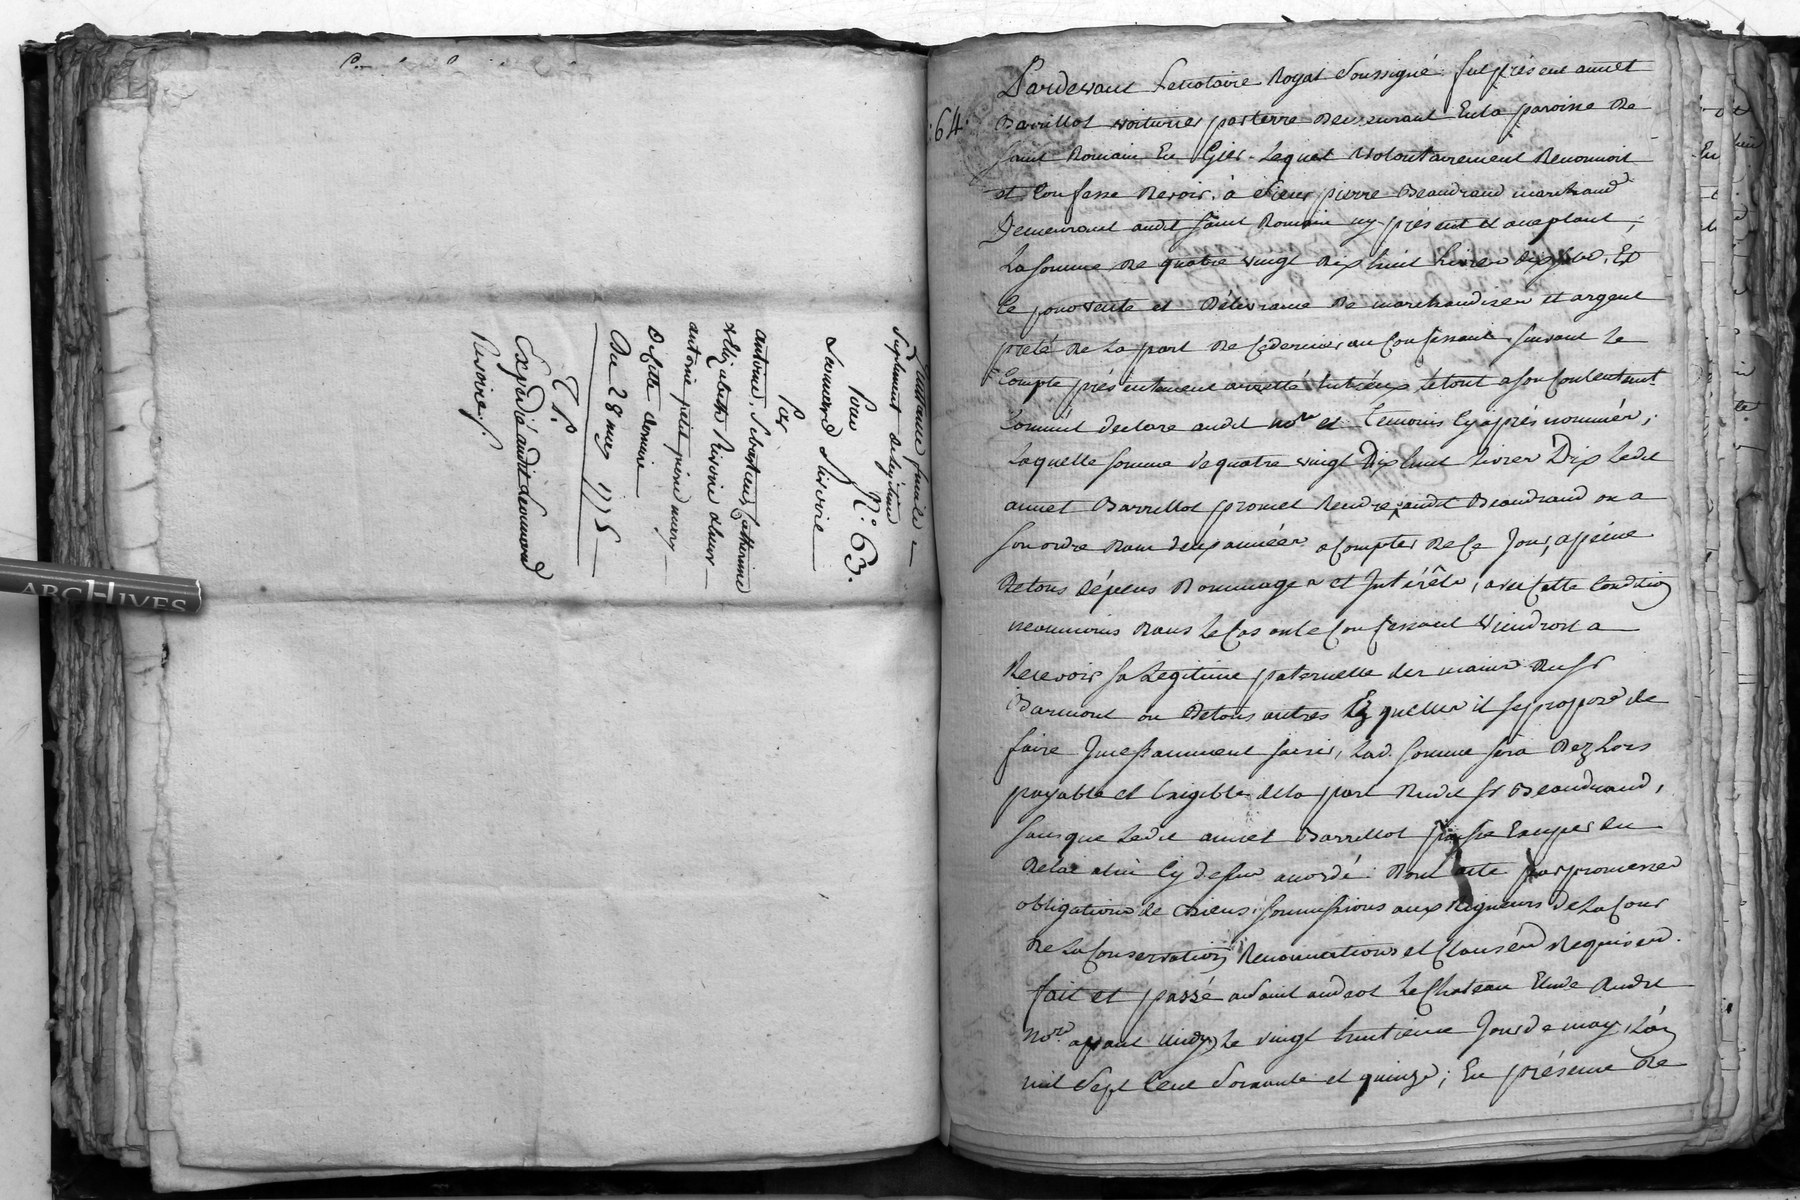 Quittance finale
suplement de legitime
N.° 63.
Pour
Leonnard Rivoire
Par
antoine, Sebastien, Catherinne
& Elizabeth Rivoire & sieur
antoine petit pierre mary
de cette derniere
Du 28 may 1775
C. P.
Expedié audit Leonnard
Rivoire
ARCHIVES
64.
Pardevant Le notaire Royal Soussigné fut présent annet
Barrillot voiturier par terre demeurant En la paroisse de
Saint Romain En Gier. Lequel volontairement Reconnoit
et Confesse devoir à Sieur pierre Beaudrand marchand
Demeurant audit Saint Romain icy présent et acceptant;
La Somme de quatre vingt dix huit Livres dix sols, Et
Ce pour vente et délivrance de marchandises et argent
preté de La part de Ce dernier au Confessant suivant Le
Compte présentement arretté Entr'eux, le tout a son Contentemt.
Comm'il declare audit no.re et Temoins Cy après nommés;
Laquelle somme de quatre vingt Dix huit Livres Dix Ledit
annet Barrillot promet Rendre audit Beaudrand ou a
son ordre dans deux années a Compter de Ce Jour, a peine
de tous dépens dommages et Intérêts, avec Cette Condition
neanmoins dans Le Cas ou Le Confessant viendroit a
Recevoir sa Legitime paternelle des mains du Sr
Barmont ou de tous autres Lesquelles il se propose de
faire Incessamment saisir, Lad. Somme sera dez Lors
payable et Exigible de la part dudit Sr Beaudrand,
sans que Ledit annet Barrillot puisse Exciper du
délai a lui Cy dessus accordé. Dont acte par promesses
obligations de biens, soumissions aux Rigueurs de La Cour
de La Conservation Renonciations et Clauses Requises.
fait et passé a Saint andeol Le Chateau Etude dudit
no.re avant midy Le vingt huitieme Jour de may, L'an
mil Sept Cent Soixante et quinze; En présence de